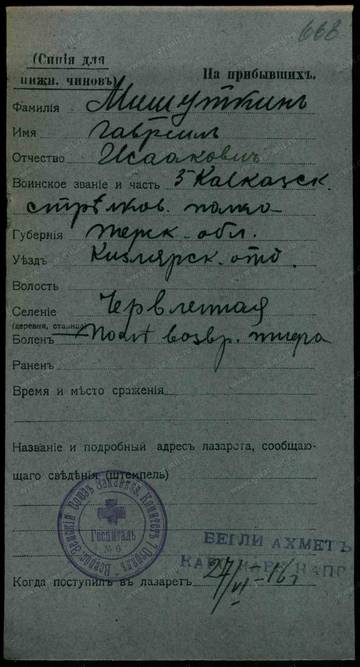 668
(Синія для
нижн. чиновъ) На прибывшихъ.
Фамилія Мишуткинъ
Имя Гавріилъ
Отчество Исааковичъ
Воинское званіе и часть 5 Кавказск.
стрѣлков. полка
Губернія Терск. обл.
Уѣздъ Кизлярск. отд.
Волость
Селеніе Червленная
(деревня, станица)
Боленъ возвр. тифа
Раненъ
Время и мѣсто сраженія
Названіе и подробный адресъ лазарета, сообщаю-
щаго свѣдѣнія (штемпель)
Госпиталь
№ 6
БЕГЛИ АХМЕТЪ
Когда поступилъ въ лазаретъ 27/VI—16 г